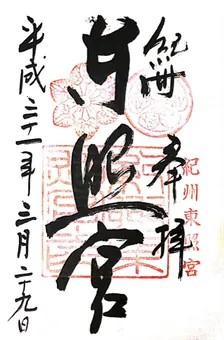 紀州
奉拝
紀州東照宮
東照宮
平成二十一年三月二十九日